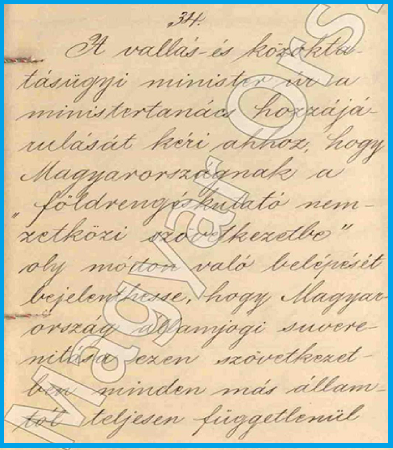 34.
A vallás- és közokta-
tásügyi minister úr a
ministertanács hozzájá-
rulását kéri ahhoz, hogy
Magyarországnak a
"földrengéskutató nem-
zetközi szövetkezetbe"
oly módon való belépését
bejelenthesse, hogy Magyar-
ország államjogi suvere-
nitása ezen szövetkezet-
ben minden más állam-
tól teljesen függetlenül
Magyar Ors